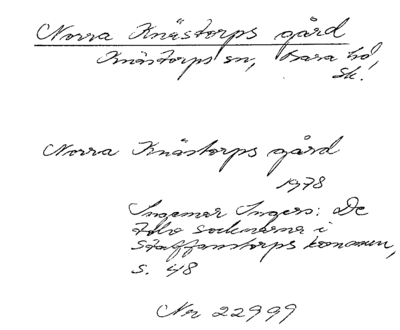 Norra Knästorps gård
Knästorps sn, Bara hd,
Sk.
Norra Knästorps gård
1978
Ingemar Ingers: De
tolv socknarna i
Staffanstorps kommun,
s. 48
Nr 22999